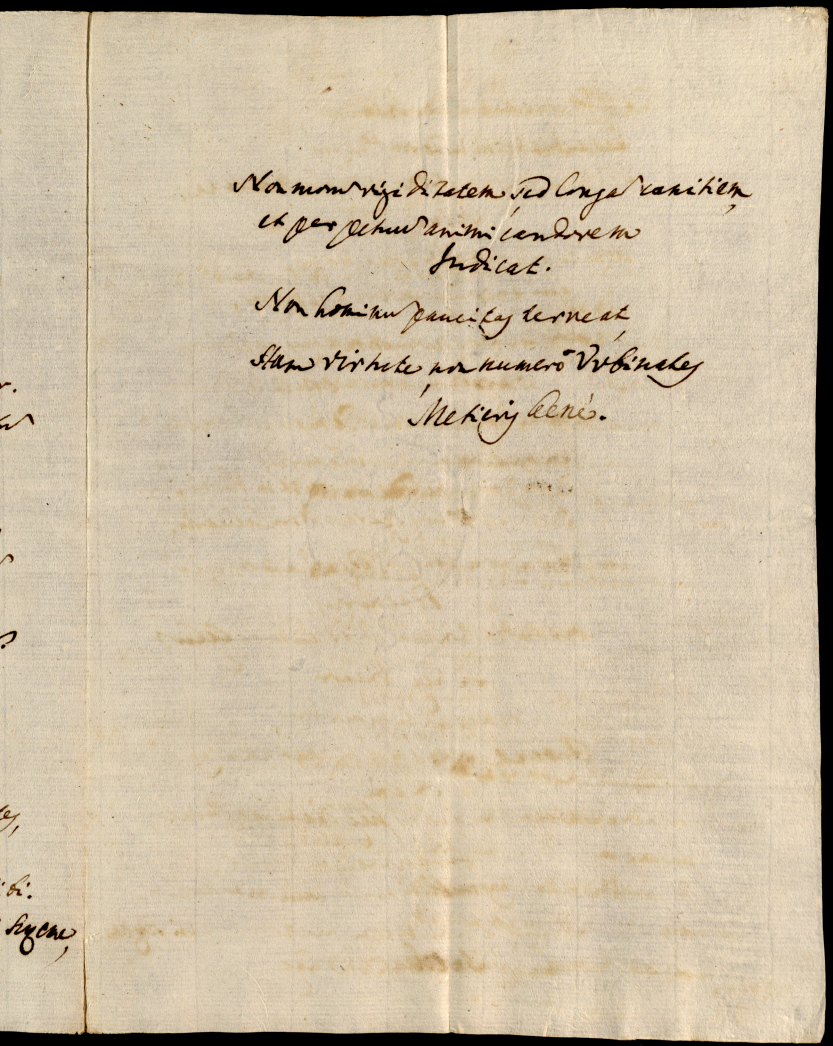 Non morũ rigiditatem, sed longã canitiem,
et perpetuũ animi candorem
Indicat.
Non hominũ paucitas terreat,
Nam virtute, non numerò Urbinates
Metieris benè.